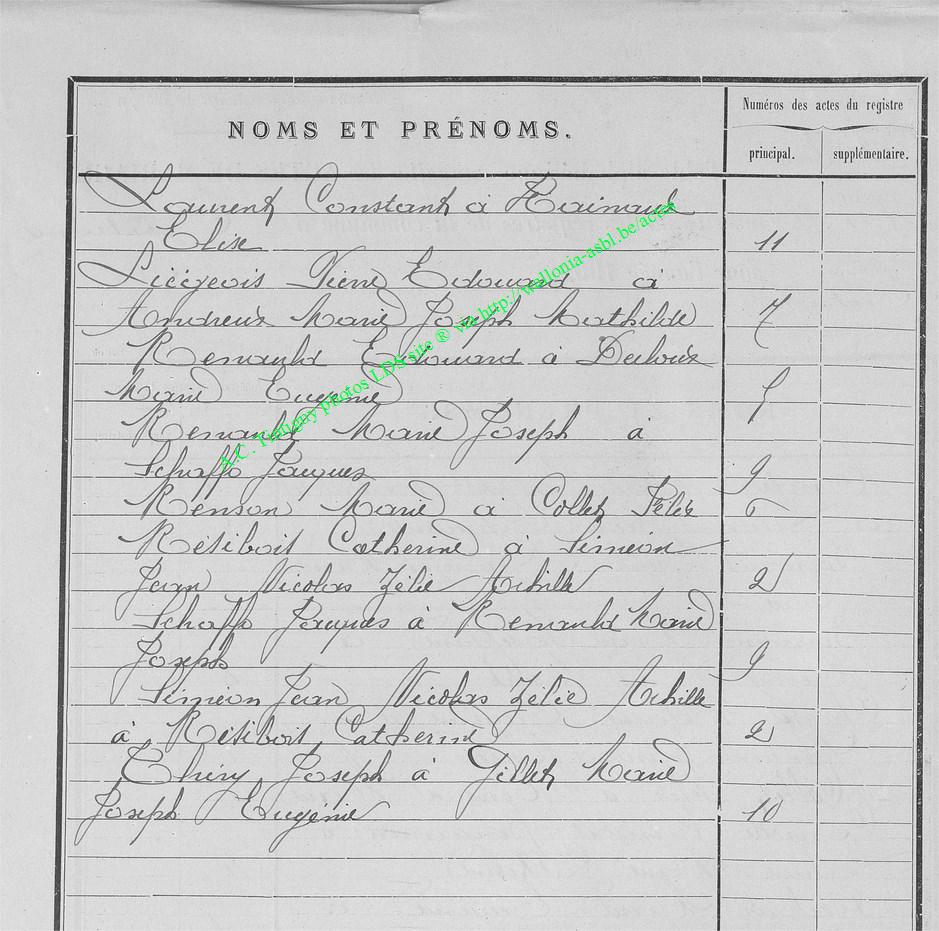 NOMS ET PRÉNOMS.
Numéros des actes du registre
principal.
supplémentaire.
Laurent Constant à Rainaux
Elise 11
Liégeois Pierre Edouard à
Andreux Marie Joseph Mathilde 7
Renauld Edouard à
Marie Eugénie 5
Renauld Marie Joseph à
Schaffs Jacques 9
Renson Marie à Collet Félix 6
Résibois Catherine à Siméon
Jean Nicolas Zélie Achille 2
Schaffs Jacques à Renauld Marie
Joseph 9
Siméon Jean Nicolas Zélie Achille
à Résibois Catherine 2
Théry Joseph à Gillet Marie
Joseph Eugénie 10
A.C. Tintigny photos LDS site ® via http://wallonia-asbl.be/actes